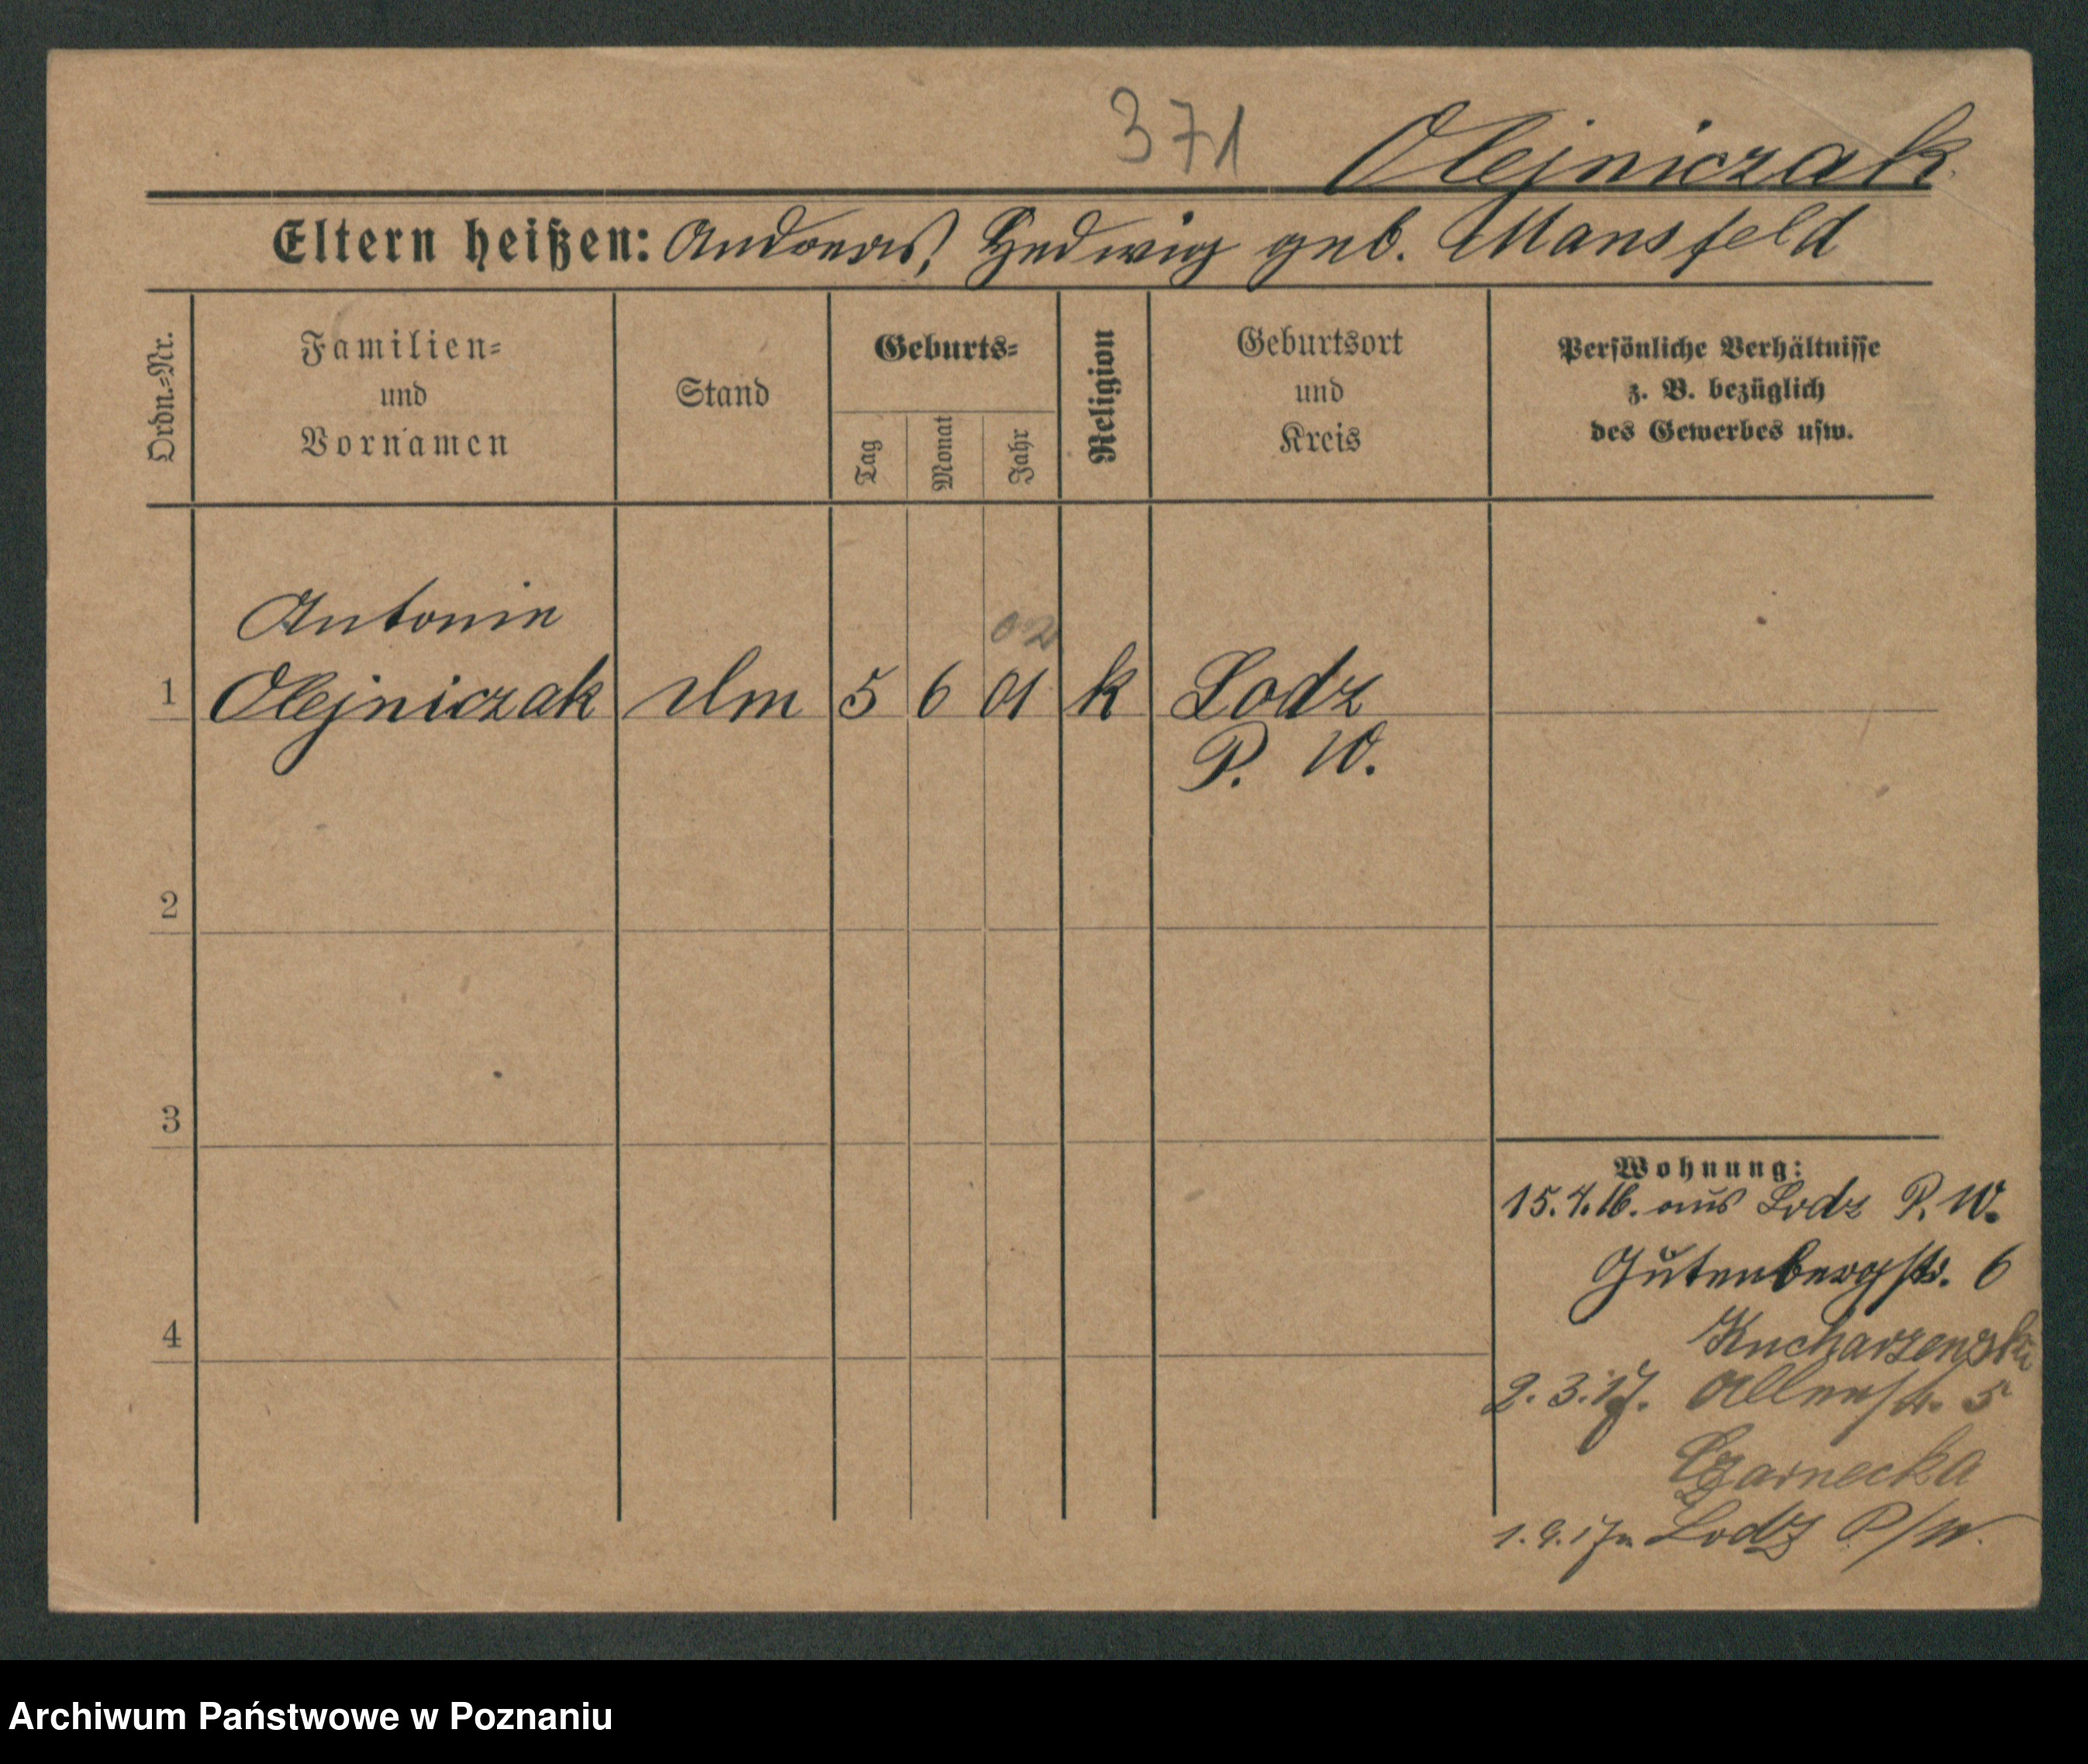 371 Olejniczak
Eltern heißen: Andreas, Hedwig geb. Mansfeld
Ordn.=Nr.
Familien=
und
Vornamen
Stand
Geburts=
Tag Monat Jahr
Religion
Geburtsort
und
Kreis
Persönliche Verhältnisse
z. B. bezüglich
des Gewerbes usw.
Antonie
02
1 Olejniczak 5 6 01 k Lodz
P. W.
2
3
4
Wohnung:
15.7.16. aus Lodz P. W.
Gutenbergstr. 6
2.3.17. 5
Czarnecka
1.9.17 Lodz P/W.
Archiwum Państwowe w Poznaniu